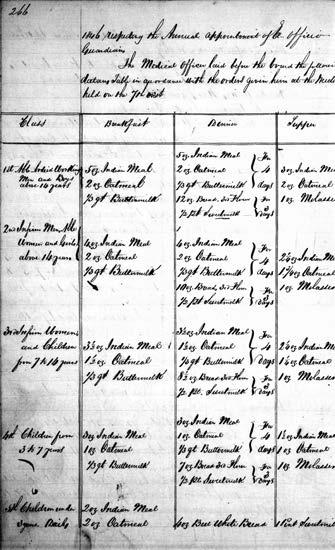 266
1846 respecting the Annual appointment of Ex officio
Guardians
The Medical Officer laid before the board the follow
dietary Table in accordance with the orders given him at the Meet
held on the 7th inst
Class Breakfast Dinner Supper
5 oz Indian Meal
1st Able bodied Working 5 oz Indian Meal 2 oz Oatmeal For 4 days 3 oz Indian Meal
Men and Boys 2 oz Oatmeal ½ qt Buttermilk 2 oz Oatmeal
above 14 years ½ qt Buttermilk 12 oz Bread 3rd Flour For 3 days 1 oz Molasses
½ pt Sweetmilk
2nd Infirm Men Able 4 oz Indian Meal 4 oz Indian Meal
Women and Girls 2 oz Oatmeal 2 oz Oatmeal For 4 days 2½ oz Indian Me
above 14 years ½ qt Buttermilk ½ qt Buttermilk 1½ oz Oatmeal
10 oz Bread 3rd Flour For 3 days 1 oz Molasses
½ pt Sweetmilk
3½ oz Indian Meal
3rd Infirm Women 1½ oz Oatmeal For 4 days
and Children 3½ oz Indian Meal ½ qt Buttermilk 2½ oz Indian
from 7 to 14 years 1½ oz Oatmeal 8½ oz Bread 3rd Flour For 3 days 1½ oz Oatmeal
½ qt Buttermilk ½ pt Sweetmilk 1 oz Molasses
3 oz Indian Meal
4th Children from 3 oz Indian Meal 1 oz Oatmeal For 4 days 1½ oz Indian Me
3 to 7 years 1 oz Oatmeal ½ qt Buttermilk 1 oz Oatmeal
½ qt Buttermilk 7 oz Bread 3rd Flour For 3 days 1 oz Molasses
½ pt Sweetmilk
5th Children under 2 oz Indian Meal
2 oz Oatmeal 4 oz Best White Bread 1 Pint Sweetmi